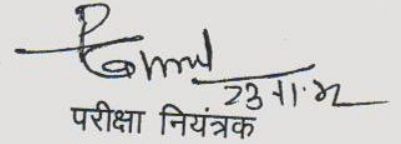 23.11.22
परीक्षा नियंत्रक